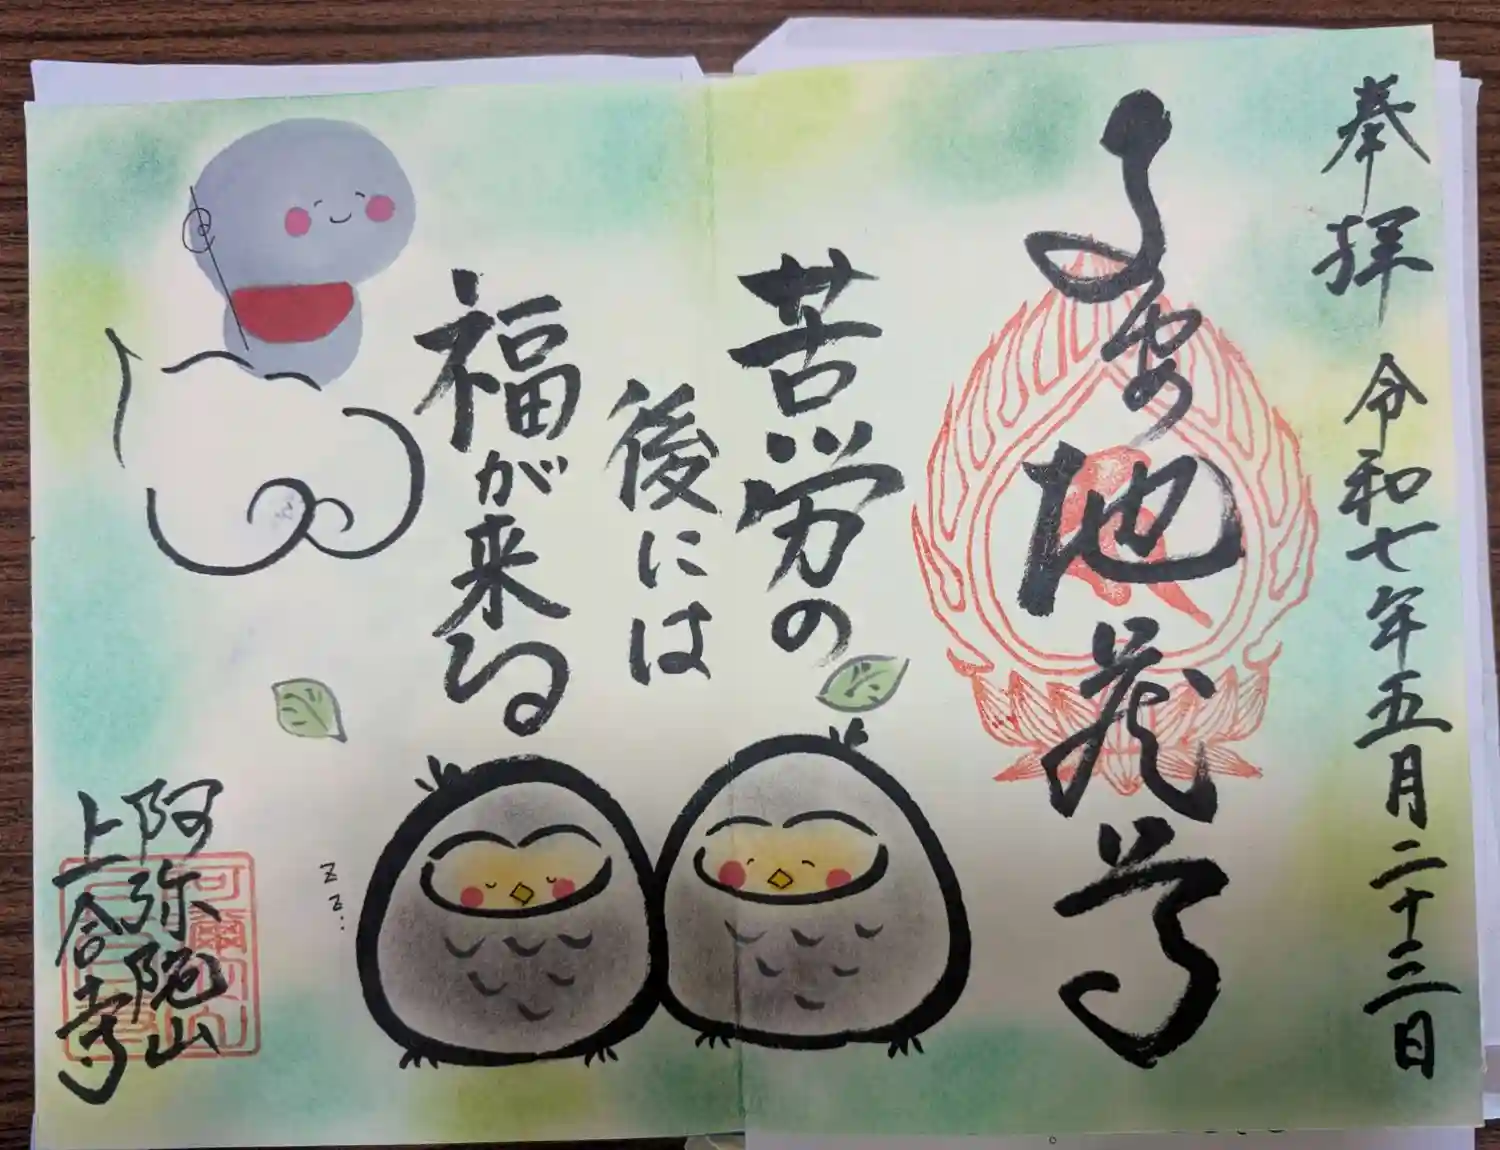 奉拝 令和七年五月二十三日
子安地蔵尊
苦労の
後には
福が来る
zz..
阿弥陀山
上合寺